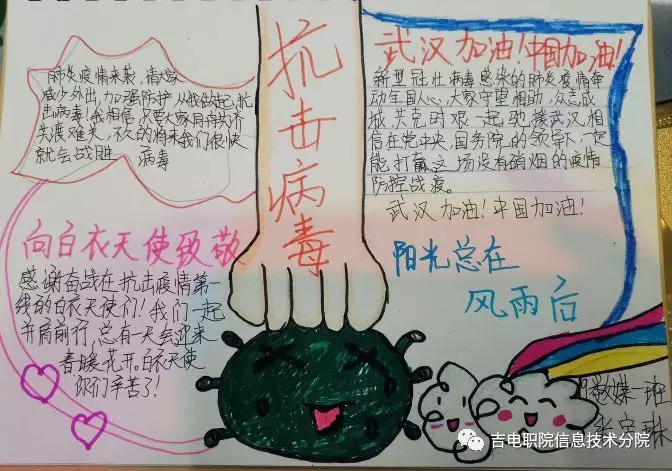 肺炎疫情来袭，请大家
减少外出，加强防护，从我做起，抗
击病毒！我相信，只要大家同舟共济
共渡难关，不久的将来我们很快
就会战胜 病毒
抗击病毒
武汉加油！中国加油！
新型冠状病毒感染的肺炎疫情牵
动生国人心，大家守望相助，众志成
城，共克时艰，一起驰援武汉，相
信在党中央、国务院的领导下一定
能打赢这场没有硝烟的疫情
防控战疫。
武汉加油！中国加油！
向白衣天使致敬
感谢奋战在抗击疫情第一
线的白衣天使们！我们一起
并肩前行，总有一天会迎来
春暖花开。白衣天使
你们辛苦了！
阳光总在
风雨后
数媒一班
吉电职院信息技术分院